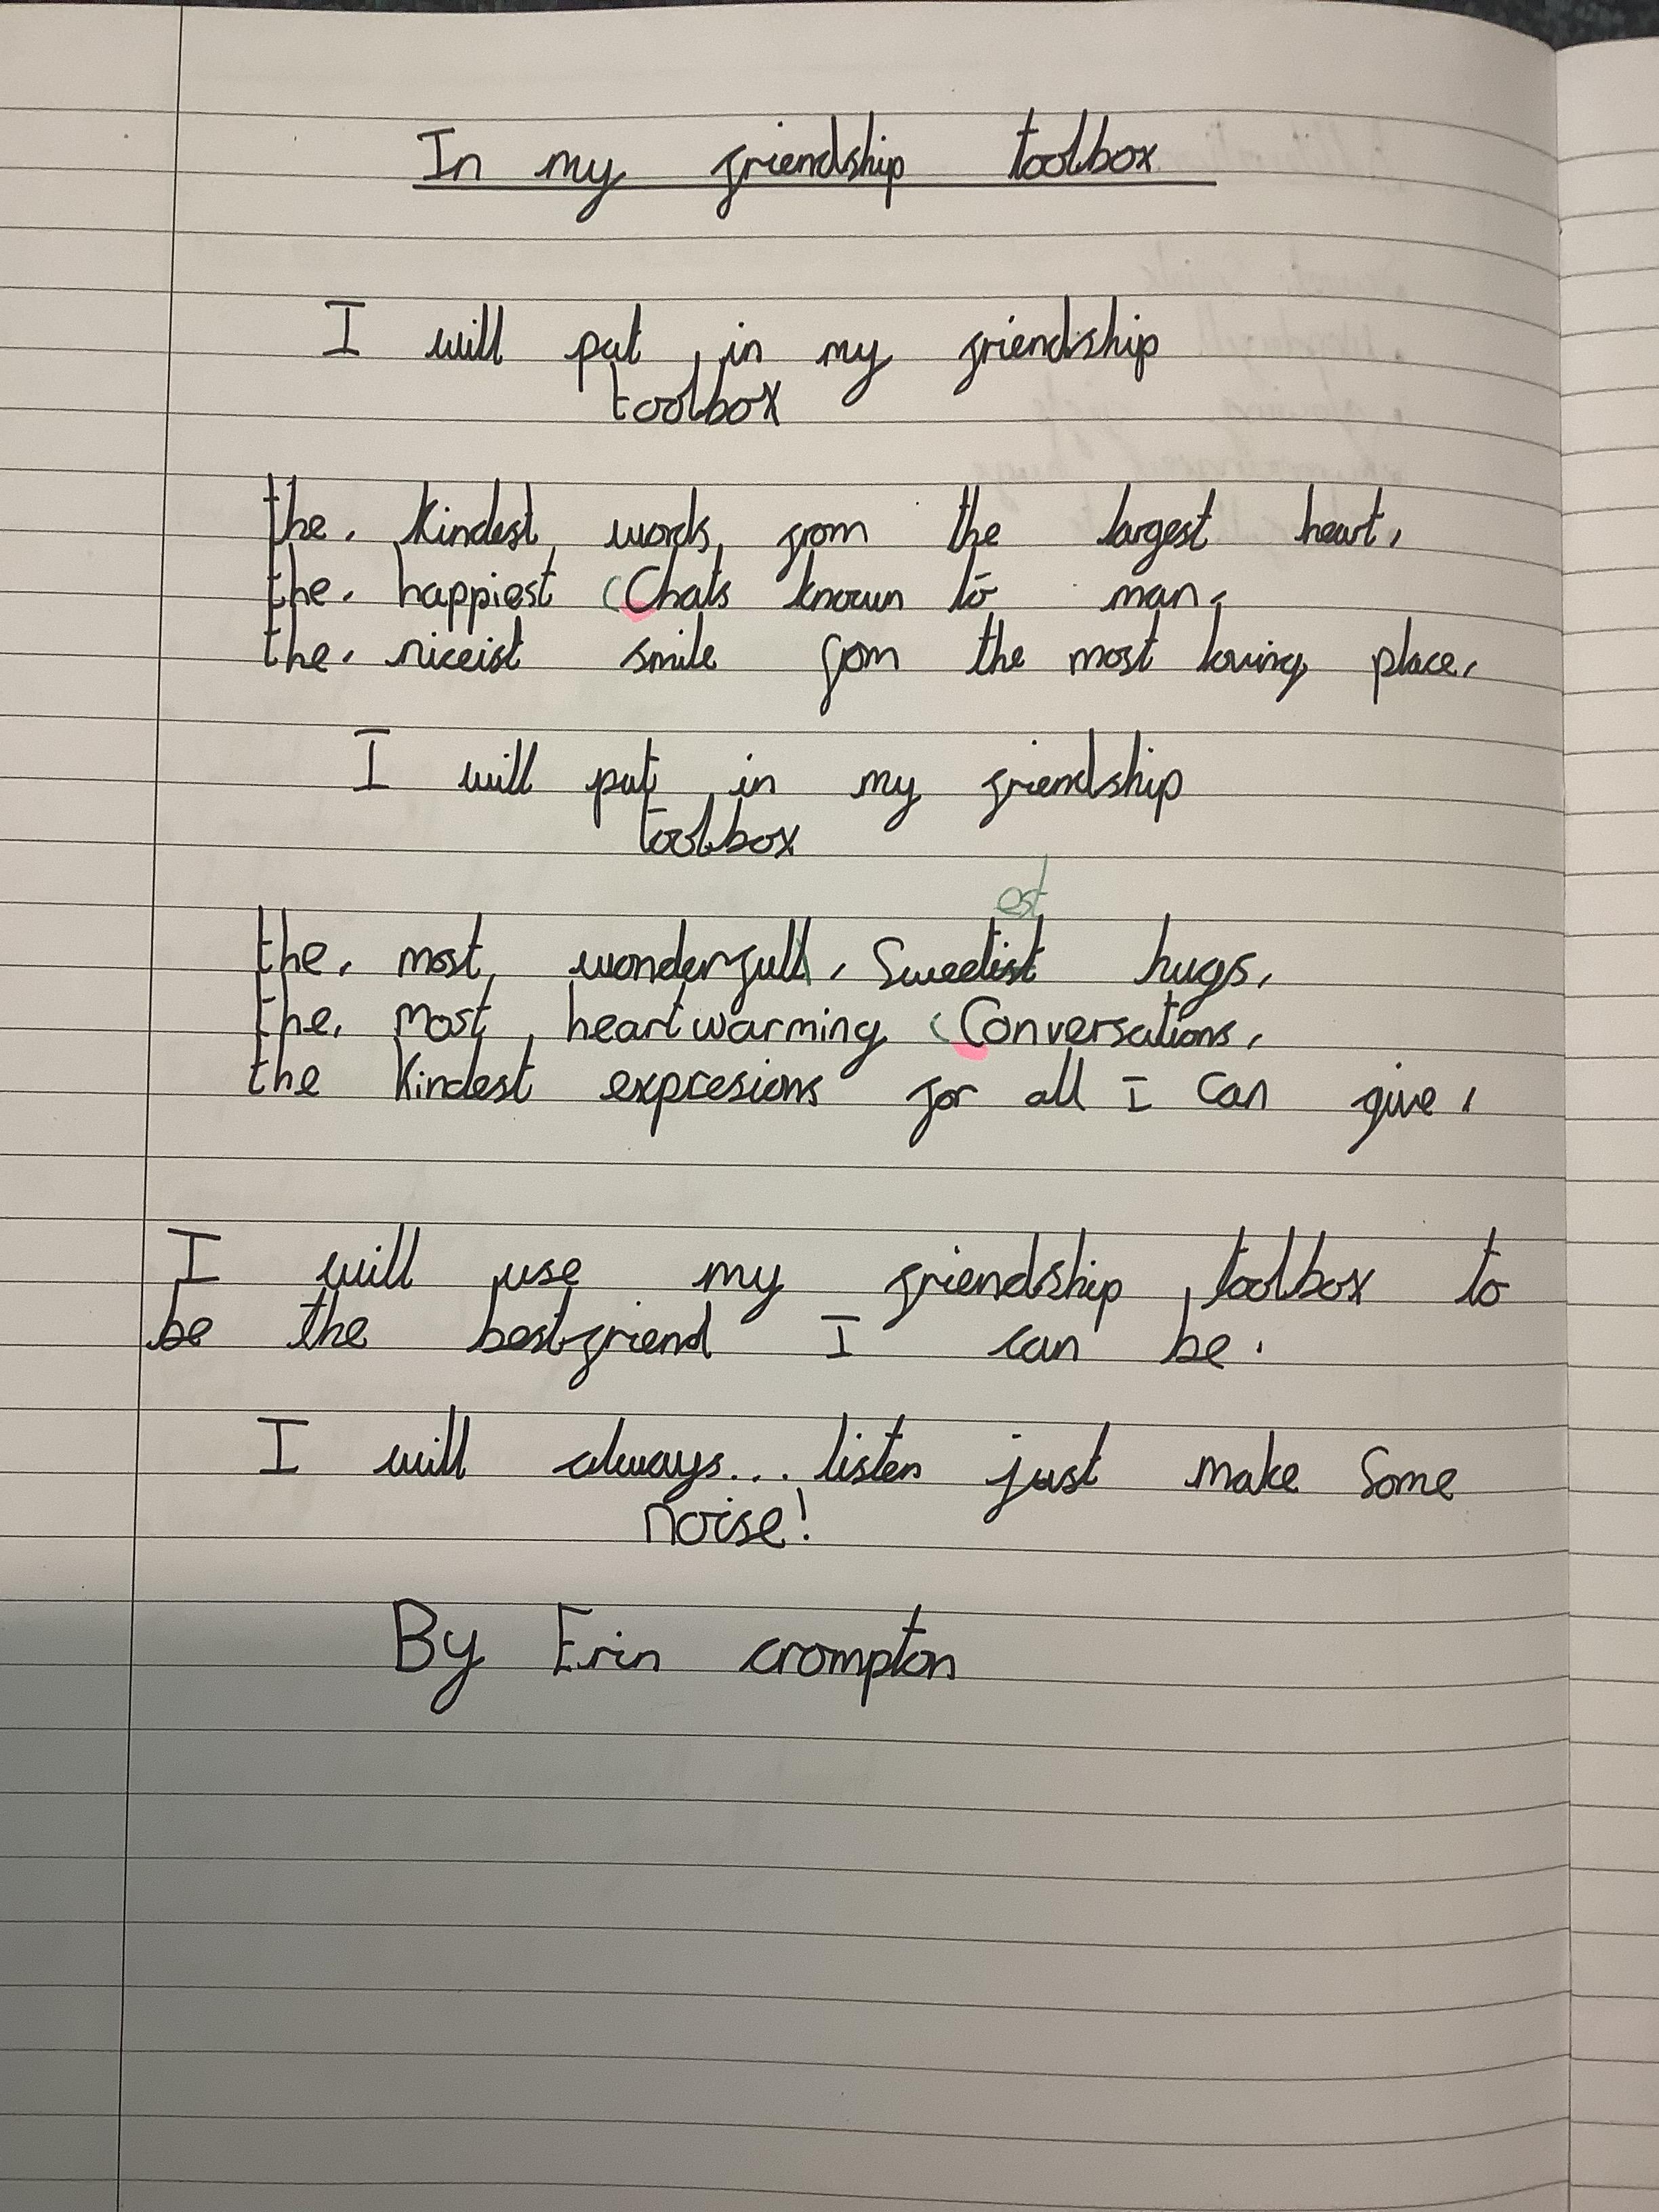 In my friendship toolbox
I will put in my friendship
toolbox
the. kindest words from the largest heart,
the. happiest (Chats known to man,
the. niceist smile from the most loving place,
I will put in my friendship
toolbox
est
the, most wonderfull, Sweetist hugs,
the, most heartwarming (Conversations,
the kindest expresions for all I can give,
I will use my friendship toolbox to
be the best friend I can be.
I will always... listen just make some
noise!
By Erin crompton